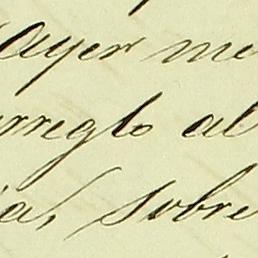 Ayer me
arreglo al
ias, sobre